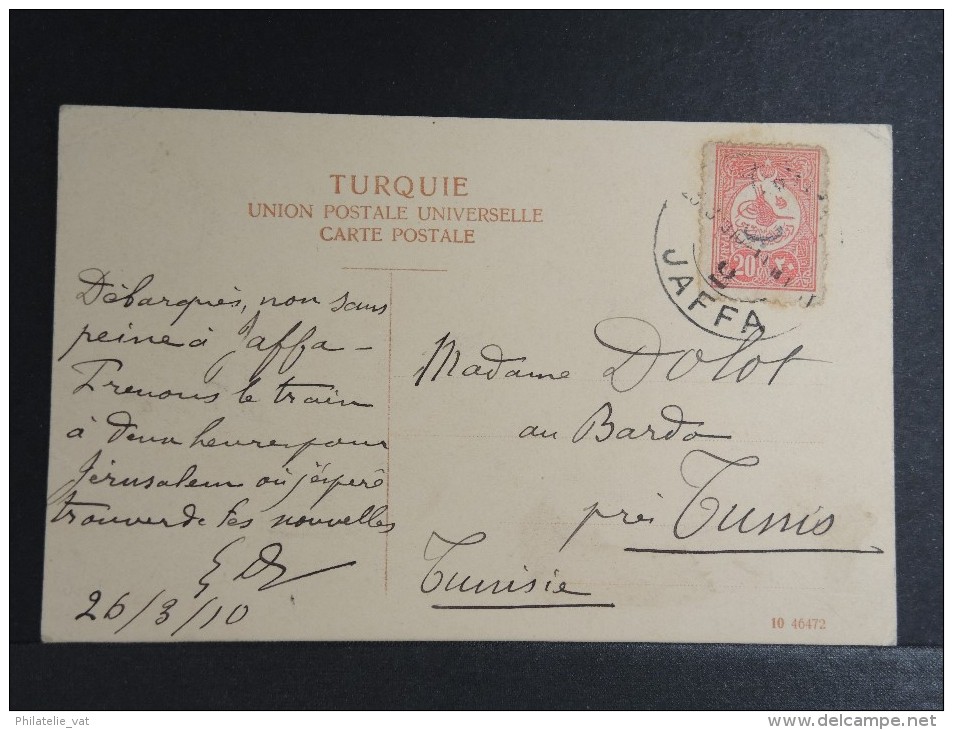 TURQUIE
UNION POSTALE UNIVERSELLE
CARTE POSTALE
20
JAFFA
Débarqués, non sans
peine à Jaffa –
Prenons le train
à deux heures pour
Jérusalem où j'espère
trouver de tes nouvelles
26/3/10
Madame Dolot
au Bardo
près Tunis
Tunisie
10 46472
Philatelie_vat
www.delcampe.net